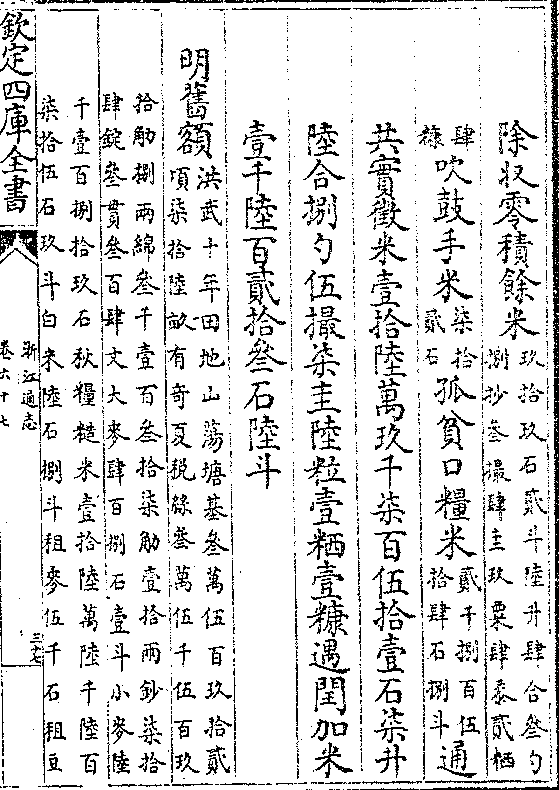 除收零積餘米玖拾玖石貳斗陸升肆合叄勺
捌抄叄撮肆圭玖粟肆黍貳粞
肆糠吹鼓手米柒拾貳石孤貧口糧米貳千捌百伍拾肆石捌斗通
共實徵米壹拾陸萬玖千柒百伍拾壹石柒升
陸合捌勺伍撮柒圭陸粒壹粞壹糠遇閏加米
壹千陸百貳拾叄石陸斗
明舊額洪武十年田地山蕩塘基叄萬伍百玖拾貳
項柒拾陸畝有奇夏稅絲叄萬伍千伍百玖
拾觔捌兩綿叄千壹百叄拾柒觔壹拾兩鈔柒拾
肆錠叄貫叄百肆文大麥肆百捌石壹斗小麥陸
千壹百捌拾玖石秋糧糙米壹拾陸萬陸千陸百
柒拾伍石玖斗白米陸石捌斗租麥伍千石租豆
欽定四庫全書
浙江通志
卷六十七
三七